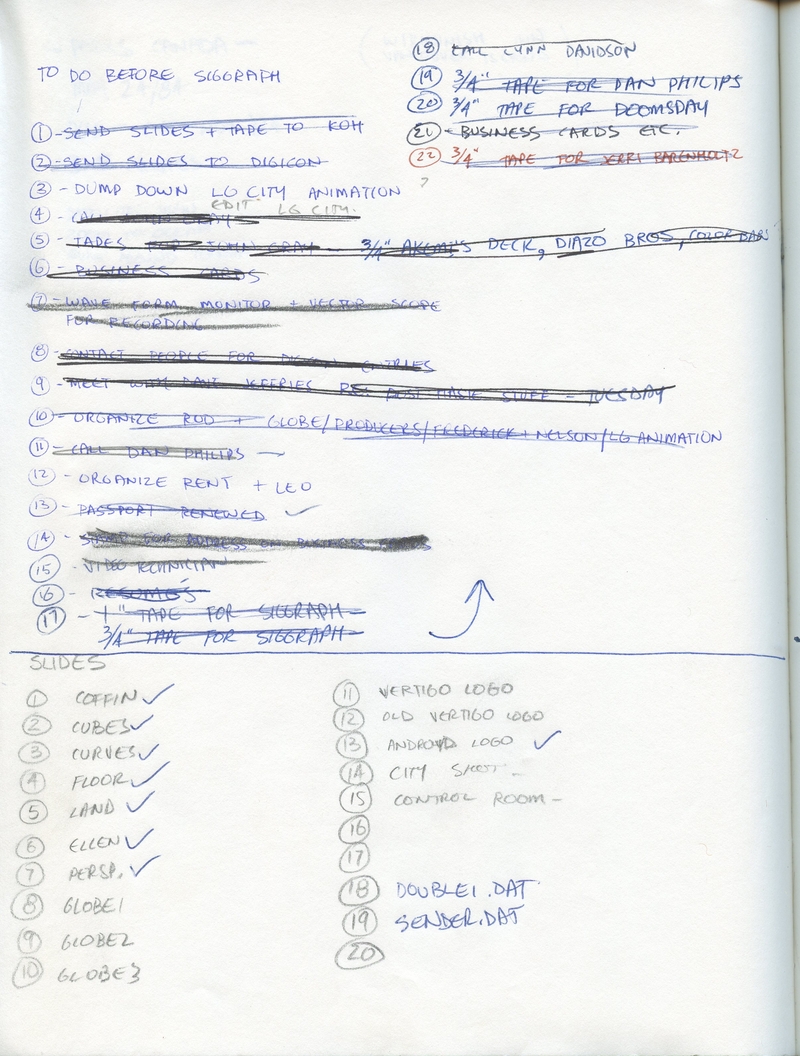 TO DO BEFORE SIGGRAPH
① - SEND SLIDES + TAPE TO KOH
② - SEND SLIDES TO DIGICON
③ - DUMP DOWN LG CITY ANIMATION
EDIT LG CITY.
④ - CALL GRAY
⑤ - TAPES FOR JOHN GRAY - 3/4" AKEMI'S DECK, DIAZO BROS, COLOR BARS
⑥ - BUSINESS CARDS
⑦ - WAVE FORM MONITOR + VECTOR SCOPE
FOR RECORDING
⑧ - CONTACT PEOPLE FOR DIGICON ENTRIES
⑨ - MEET WITH DAVE JEFFRIES RE: STUFF - TUESDAY
⑩ - ORGANIZE ROD + GLOBE/PRODUCERS/FREDERICK + NELSON/LG ANIMATION
⑪ - CALL DAN PHILIPS -
⑫ - ORGANIZE RENT + LEO
⑬ - PASSPORT RENEWED ✓
⑭ - STAMP FOR ADDRESS ON BUSINESS CARDS
⑮ - VIDEO TECHNICIAN
⑯ - RESUMÉS
⑰ - 1" TAPE FOR SIGGRAPH
3/4" TAPE FOR SIGGRAPH
⑱ CALL LYNN DAVIDSON
⑲ 3/4" TAPE FOR DAN PHILIPS
⑳ 3/4" TAPE FOR DOOMSDAY
㉑ - BUSINESS CARDS ETC.
㉒ 3/4" TAPE FOR JERRI BARENHOLTZ
?
SLIDES
① COFFIN ✓
② CUBES ✓
③ CURVES ✓
④ FLOOR ✓
⑤ LAND ✓
⑥ ELLEN ✓
⑦ PERSP. ✓
⑧ GLOBE1
⑨ GLOBE2
⑩ GLOBE3
⑪ VERTIGO LOGO
⑫ OLD VERTIGO LOGO
⑬ ANDROYD LOGO ✓
⑭ CITY SHOT -
⑮ CONTROL ROOM -
⑯
⑰
⑱ DOUBLE1.DAT
⑲ SENDER.DAT
⑳